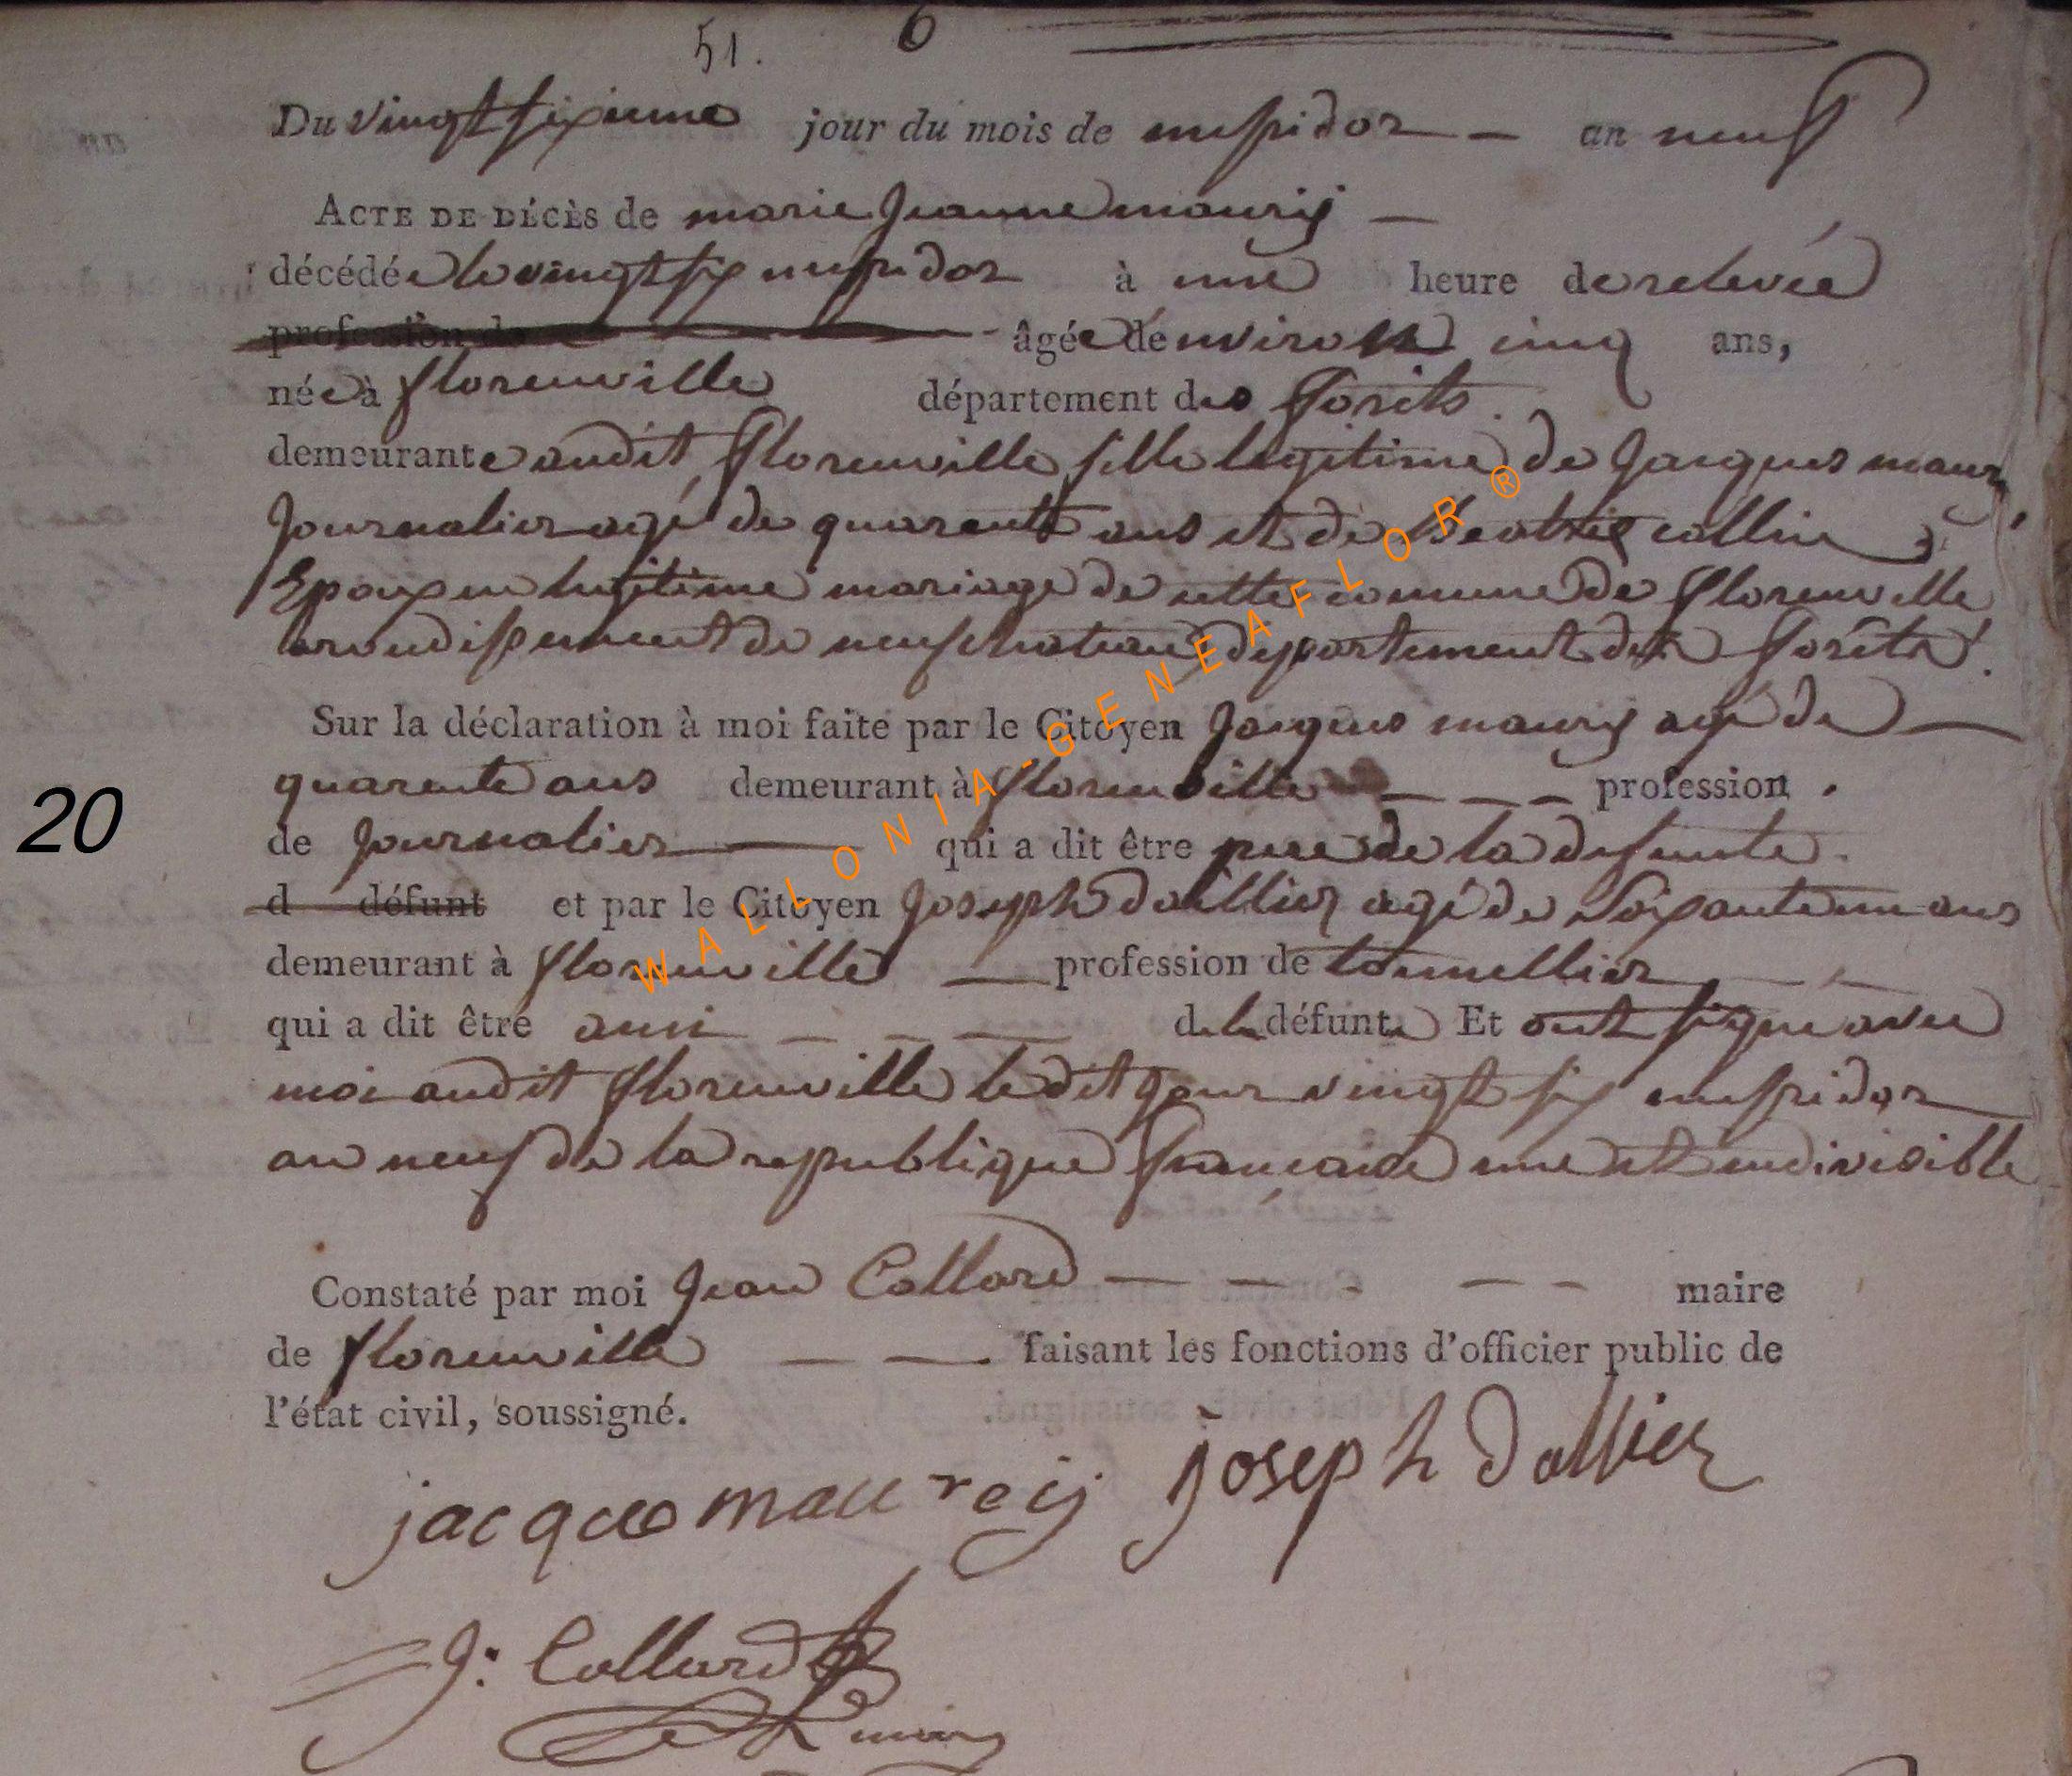 51. 6
Du vingt sixieme jour du mois de messidor an neuf
ACTE DE DÉCÈS de marie Jeanne maurij
décédée le vingt six messidor à une heure de relevée
profession de âgée de environ cinq ans,
née à florenville département des forêts.
demeurante audit florenville fille legitime de Jacques
Journalier agé de quarente ans et de Beatrix collin
Epoux en legitime mariage de cette commune de florenville
arondissement de neufchateau departement des forêts.
Sur la déclaration à moi faite par le Citoyen Jacques maurij agé de
quarente ans demeurant à florenville profession
de Journalier qui a dit être pere de la defunte.
d défunt et par le Citoyen Joseph dallier agé de Soixante un ans
demeurant à florenville profession de tonnellier
qui a dit être ami de la défunte Et ont signé avec
moi audit florenville ledit jour vingt six messidor
an neuf de la republique francaise une et indivisible
Constaté par moi Jean Collard maire
de florenville faisant les fonctions d'officier public de
l'état civil, soussigné.
jacque maurij joseph dallier
J: Collard
20
WALLONIA-GENEAFLOR ®